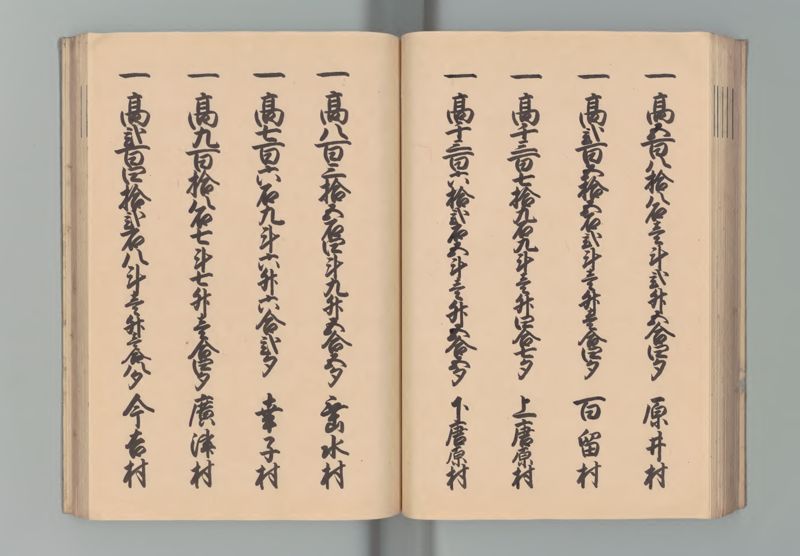 一 高五百八拾八石壱斗弐升五合四夕 原井村
一 高弐百五拾五石弐斗壱升壱合四夕 百留村
一 高千三百七拾九石九斗壱升四合七夕 上唐原村
一 高千三百六拾弐石五斗壱升五合五夕 下唐原村
一 高八百三拾五石四斗九升五合五夕 垂水村
一 高七百六石九斗六升六合弐夕 幸子村
一 高九百拾八石七斗七升壱合四夕 廣津村
一 高弐百四拾弐石八斗壱升壱合八夕 今吉村